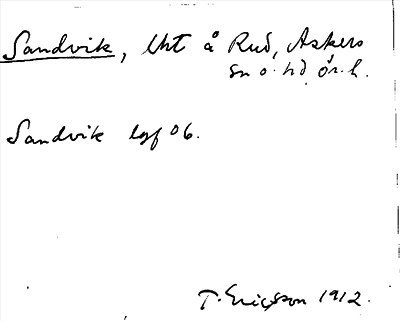 Sandvik, lht å Rud, Askers
sn o. hd ör. l.
Sandvik lgf 06.
T. Ericsson 1912.